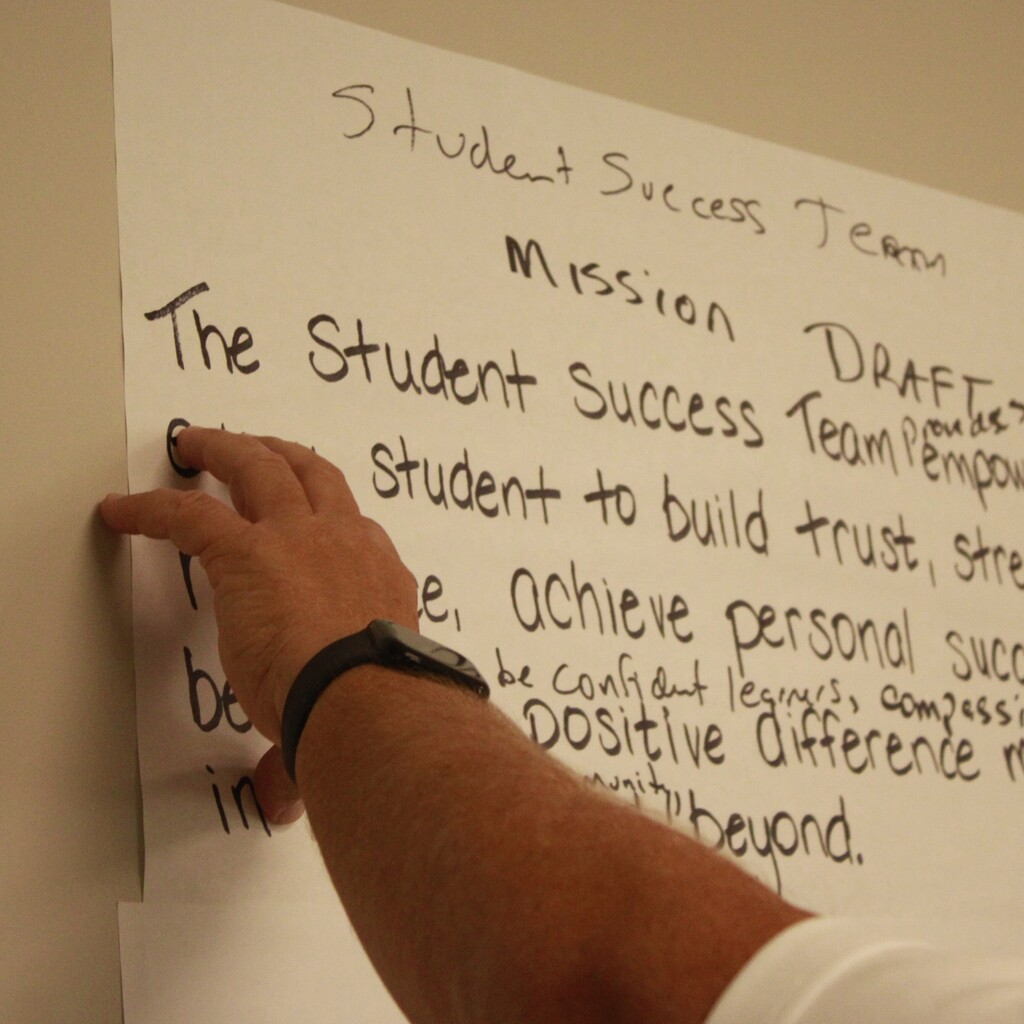 Student Success Team
Mission
DRAFT
The Student Success Team provides
empow
student to build trust, stre
e, achieve personal succ
be confident learners, compassi
be positive difference m
in munity, beyond.